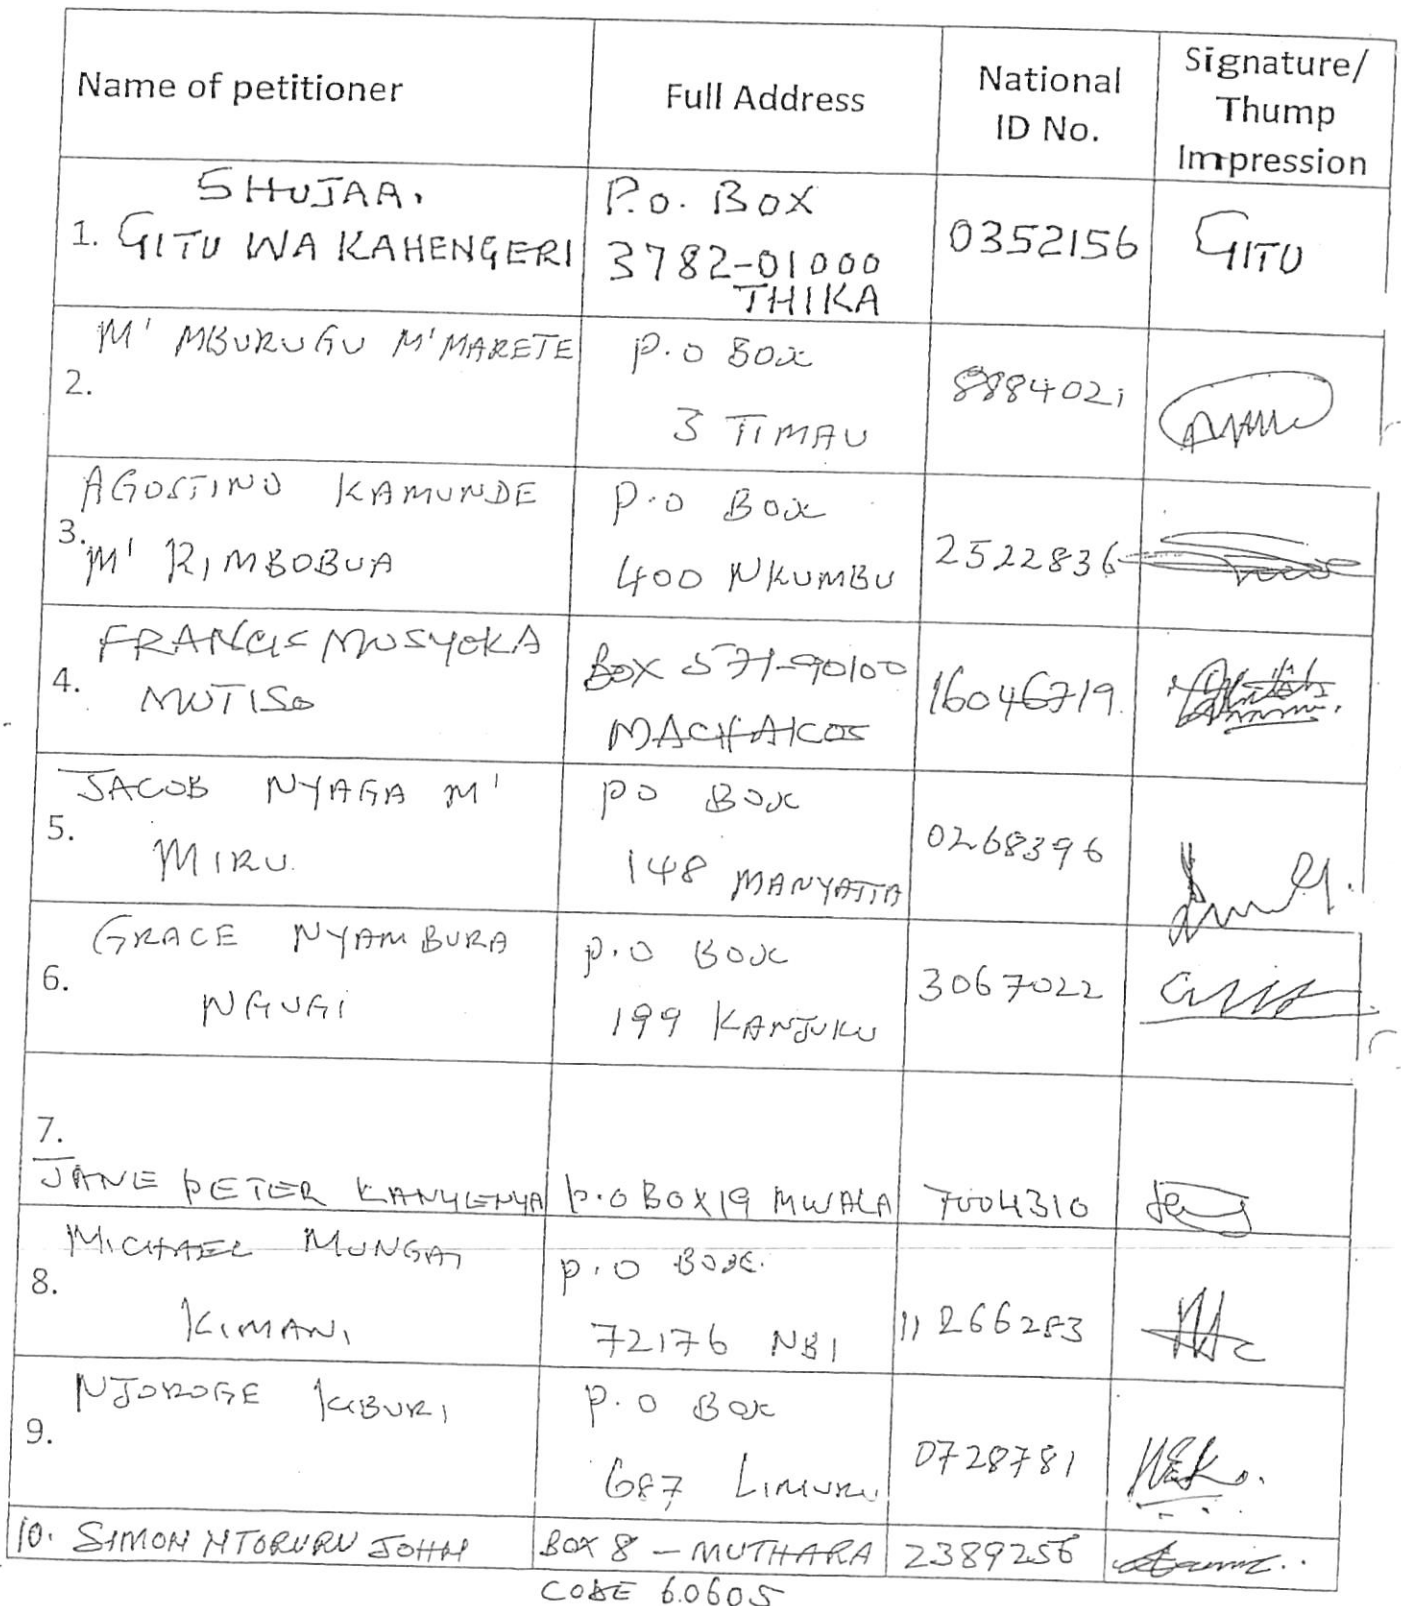 Name of petitioner
Full Address
National
ID No.
Signature/
Thump
Impression
SHUJAA.
1. GITU WA KAHENGERI
P.O. BOX
3782-01000
THIKA
0352156
GITU
M' MBURUGU M'MARETE
2.
P.O BOX
3 TIMAU
8884021
AGOSTINO KAMUNDE
3.
M' RIMBOBUA
P.O BOX
400 NKUMBU
2522836
FRANCIS MUSYOKA
4.
MUTISO
BOX 571-90100
MACHAKOS
16046719.
JACOB NYAGA M'
5.
MIRU.
PO BOX
148 MANYATTA
0268396
GRACE NYAMBURA
6.
NGUGI
P.O BOX
199 KANJUKU
3067022
7.
JANE PETER KANYLENYA
P.O BOX 19 MWALA
7004310
MICHAEL MUNGAI
8.
KIMANI
P.O BOX.
72176 NBI
11266283
NJOROGE KIBURI
9.
P.O BOX
687 LIMURU
0728781
10. SIMON NTORURU JOHN
BOX 8 - MUTHARA
2389256
CODE 60605